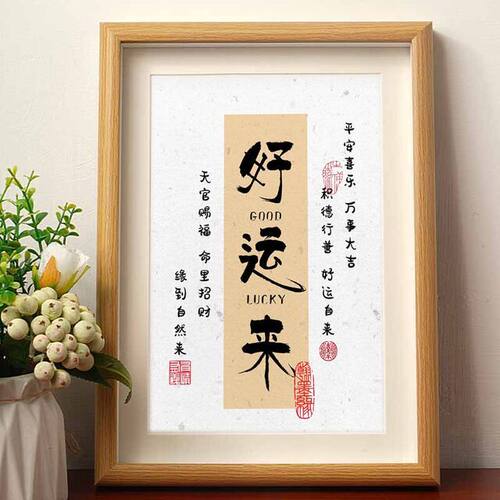 平安喜乐 万事大吉
积德行善 好运自来
好
GOOD
运
LUCKY
来
天官赐福 命里招财
缘到自然来